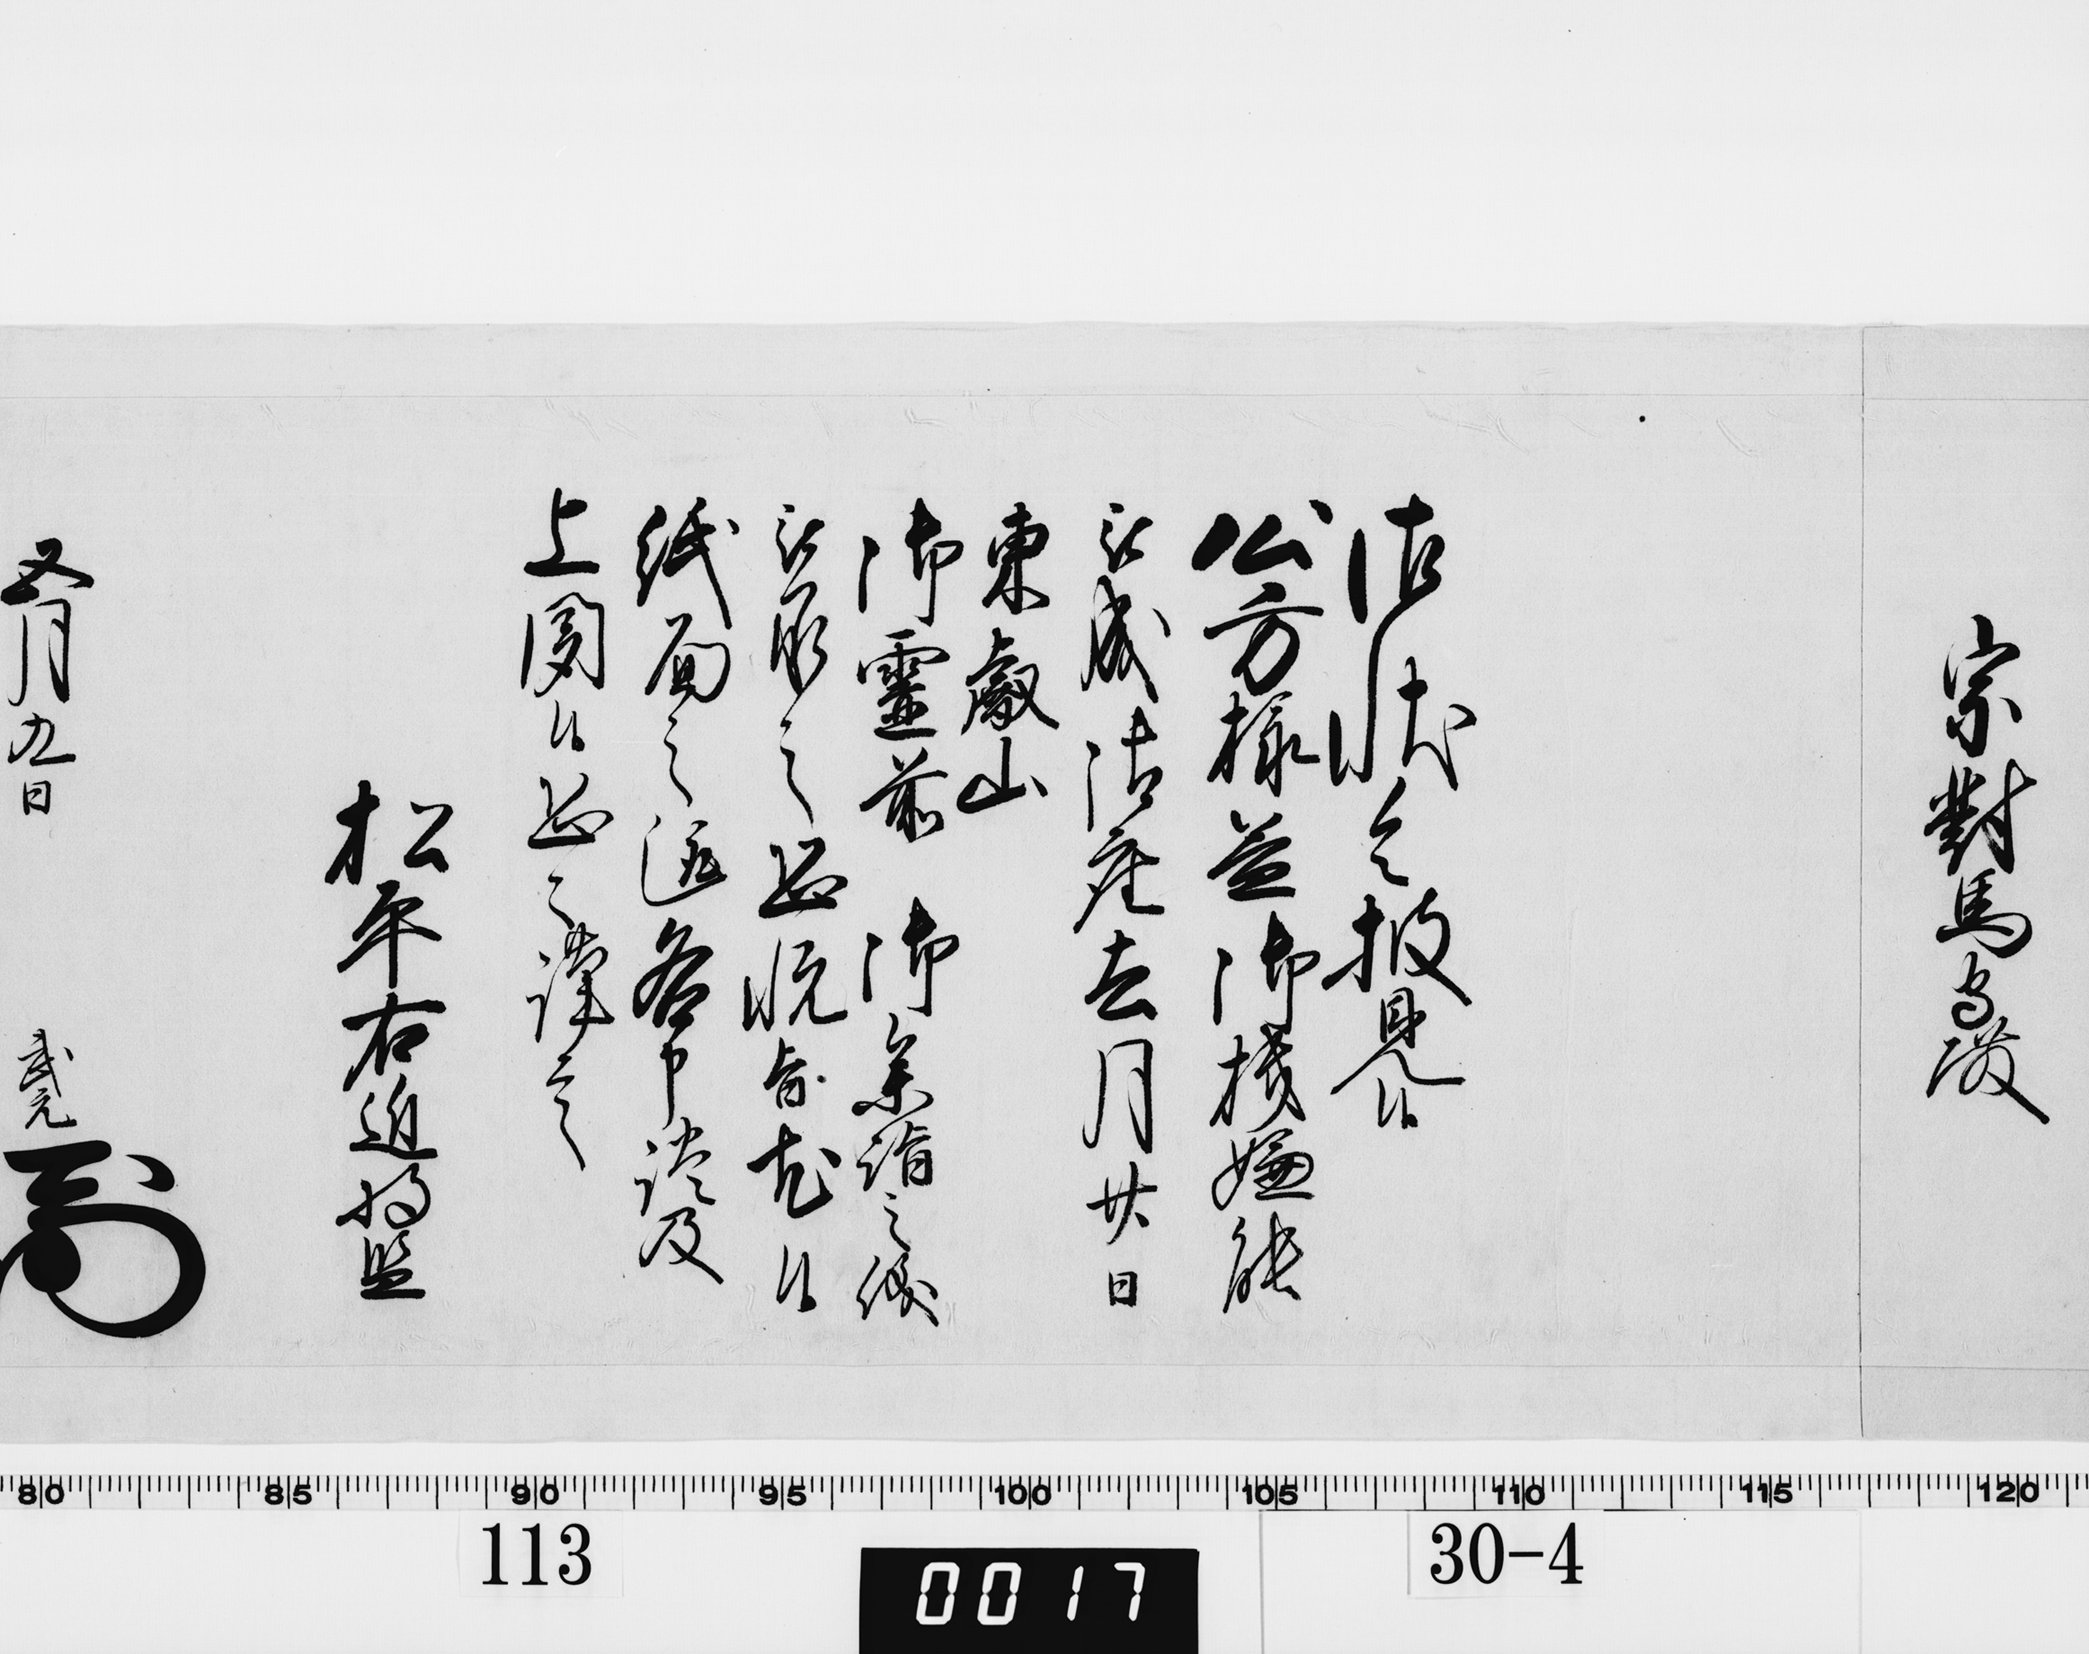 宗對馬守殿
御状令披見候
公方様益御機嫌能
被成御座去月廿日
東叡山
御靈前 御参詣之儀
被承之恐悦旨尤候
紙面之趣各申談及
上聞候恐々謹言
松平右近将監
五月九日 武元
80 85 90 95 100 105 110 115 120
113 0017 30-4